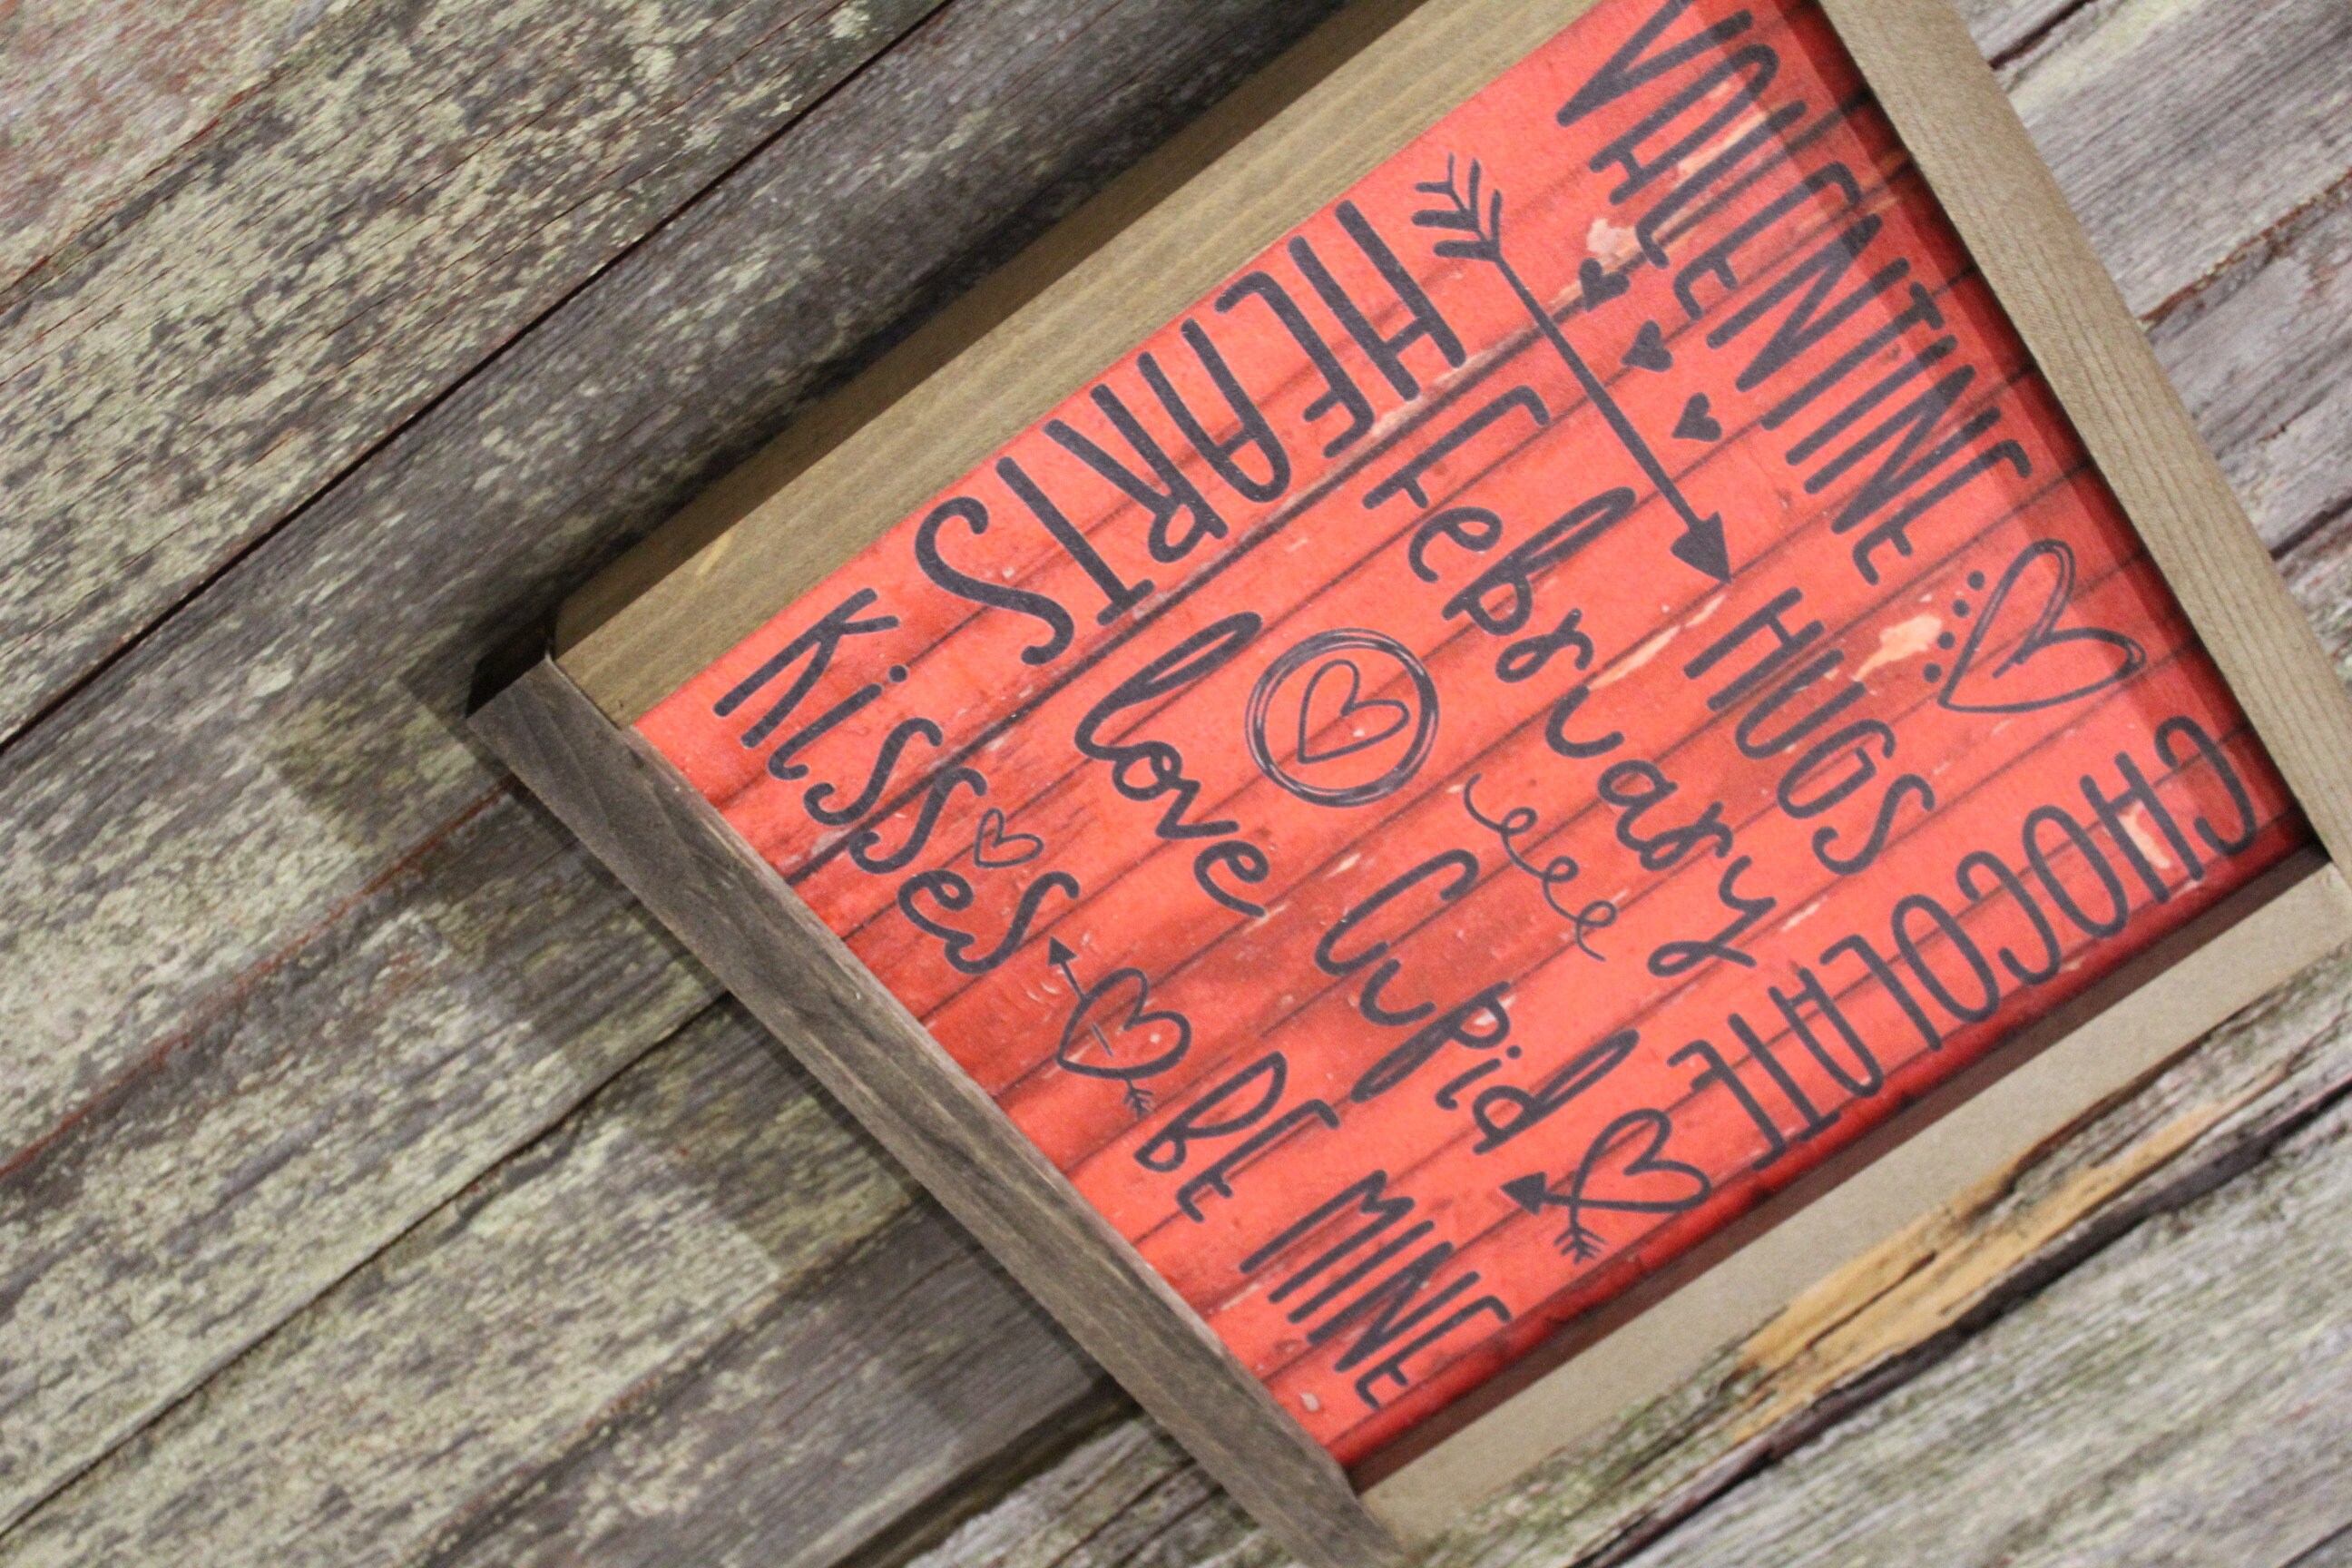 VALENTINE
HUGS
February
HEARTS
CHOCOLATE
love
Cupid
Kisses
BE MINE